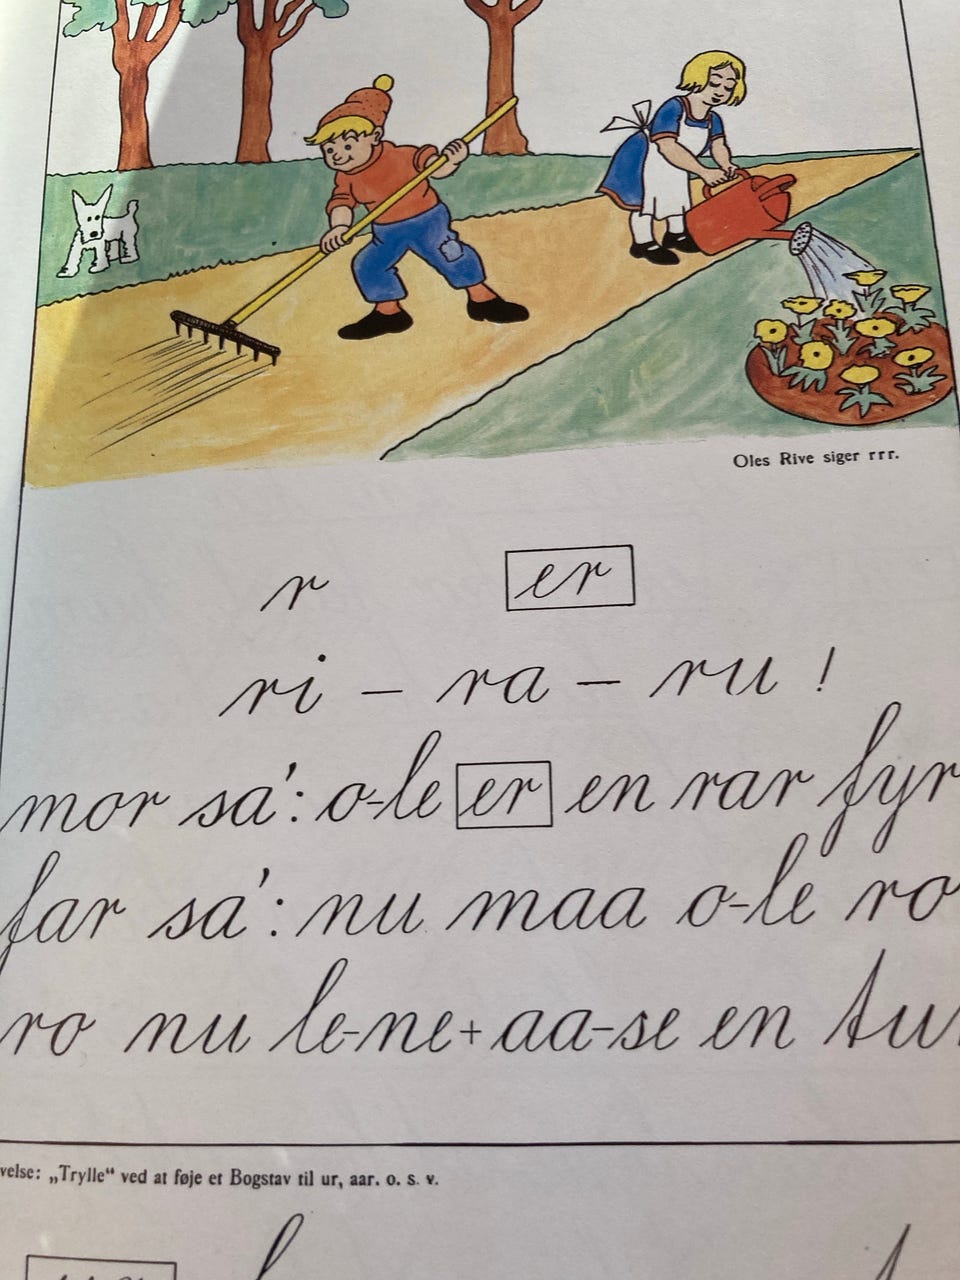 Oles Rive siger rrr.
r er
ri – ra – ru !
mor sa': o-le er en rar fyr
far sa': nu maa o-le ro
ro nu le-ne + aa-se en
velse: „Trylle“ ved at føje et Bogstav til ur, aar. o. s. v.